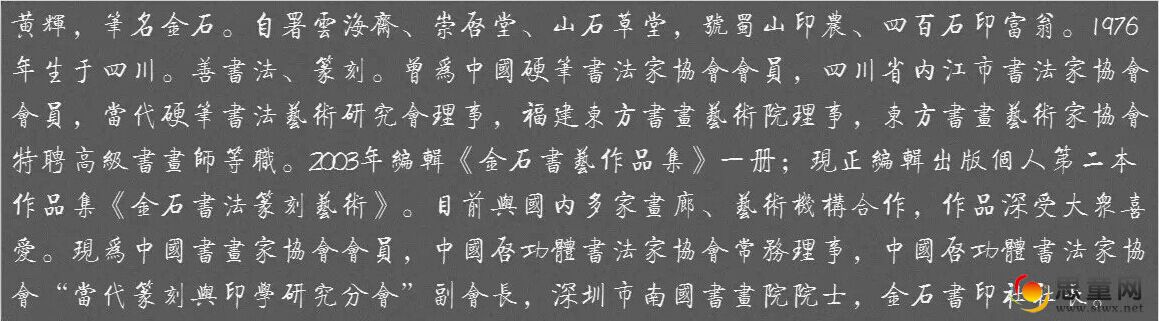 黃輝，筆名金石。自署雲海齋、崇啟堂、山石草堂，號蜀山印農、四百石印富翁。1976
年生于四川。善書法、篆刻。曾爲中國硬筆書法家協會會員，四川省内江市書法家協會
會員，當代硬筆書法藝術研究會理事，福建東方書畫藝術院理事，東方書畫藝術家協會
特聘高級書畫師等職。2003年編輯《金石書藝作品集》一册；現正編輯出版個人第二本
作品集《金石書法篆刻藝術》。目前與國内多家畫廊、藝術機構合作，作品深受大衆喜
愛。現爲中國書畫家協會會員，中國啟功體書法家協會常務理事，中國啟功體書法家協
會“當代篆刻與印學研究分會”副會長，深圳市南國書畫院院士，金石書印社社長。
思童网
www.siwx.net